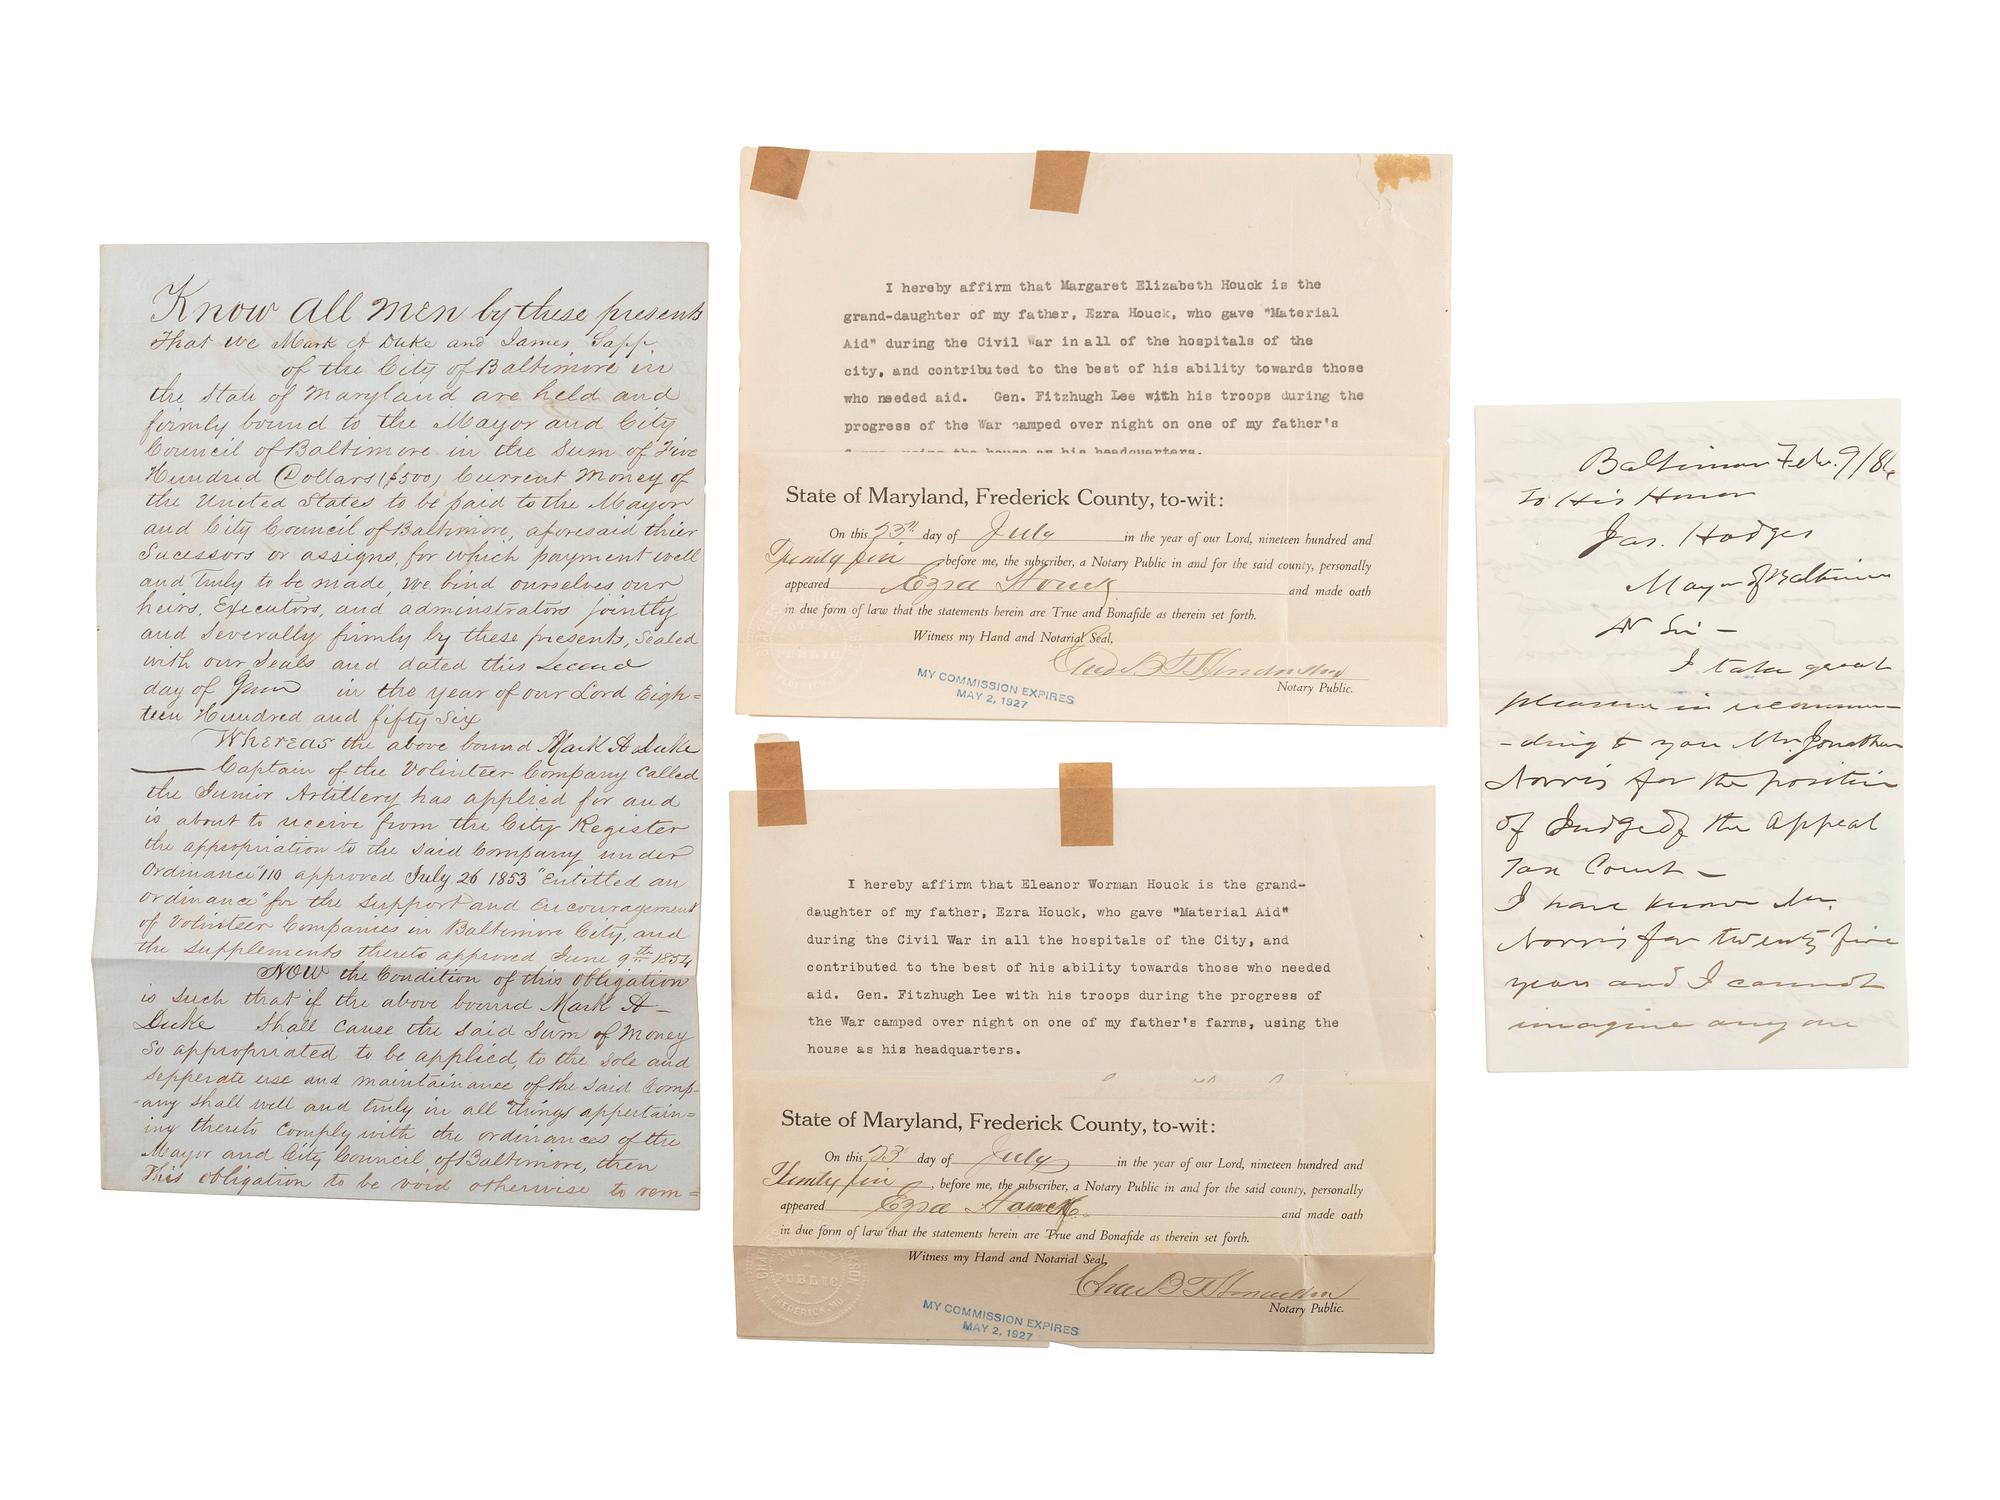 Know All Men by these presents
That we Mark A Duke and James Sapp
of the City of Baltimore in
the State of Maryland are held and
firmly bound to the Mayor and City
Council of Baltimore in the Sum of Five
Hundred Dollars ($500) Current Money of
the United States to be paid to the Mayor
and City Council of Baltimore, aforesaid thier
Sucessors or assigns, for which payment well
and truly to be made, we bind ourselves, our
heirs, Executors, and adminstrators jointly
and Severally firmly by these presents, Sealed
with our Seals and dated this Second
day of June in the year of our Lord Eigh=
teen Hundred and fifty Six
Whereas the above bound Mark A Duke
Captain of the Volunteer Company called
the Junior Artillery has applied for and
is about to receive from the City Register
the appropriation to the said Company under
Ordinance "110 approved July 26 1853 "Entitled an
ordinance" for the Support and Encouragement
of Volunteer Companies in Baltimore City, and
the Supplements thereto approved June 9th 1854
NOW the Condition of this obligation
is Such that if the above bound Mark A
Duke Shall cause the said Sum of Money
So appropriated to be applied, to the Sole and
Sepperate use and maintainance of the Said Comp-
-any Shall well and truly in all things appertain=
ing thereto Comply with the ordinances of the
Mayor and City Council of Baltimore, then
This obligation to be void otherwise to rem=
I hereby affirm that Margaret Elizabeth Houck is the
grand-daughter of my father, Ezra Houck, who gave "Material
Aid" during the Civil War in all of the hospitals of the
city, and contributed to the best of his ability towards those
who needed aid. Gen. Fitzhugh Lee with his troops during the
progress of the War camped over night on one of my father's
farms, using the house as his headquarters.
State of Maryland, Frederick County, to-wit:
On this 23rd day of July in the year of our Lord, nineteen hundred and
Twenty five before me, the subscriber, a Notary Public in and for the said county, personally
appeared Ezra Houck and made oath
in due form of law that the statements herein are True and Bonafide as therein set forth.
Witness my Hand and Notarial Seal,
Notary Public.
MY COMMISSION EXPIRES
MAY 2, 1927
I hereby affirm that Eleanor Worman Houck is the grand-
daughter of my father, Ezra Houck, who gave "Material Aid"
during the Civil War in all the hospitals of the City, and
contributed to the best of his ability towards those who needed
aid. Gen. Fitzhugh Lee with his troops during the progress of
the War camped over night on one of my father's farms, using the
house as his headquarters.
State of Maryland, Frederick County, to-wit:
On this 23 day of July in the year of our Lord, nineteen hundred and
Twenty five, before me, the subscriber, a Notary Public in and for the said county, personally
appeared Ezra Houck and made oath
in due form of law that the statements herein are True and Bonafide as therein set forth.
Witness my Hand and Notarial Seal,
PUBLIC
FREDERICK, MD
Notary Public.
MY COMMISSION EXPIRES
MAY 2, 1927
Baltimore Feb. 9/86
To His Honor
Jas. Hodges
Mayor of Baltimore
Dr Sir —
I take great
pleasure in recommen—
—ding to you Mr. Jonathan
Norris for the position
of Judge of the Appeal
Tax Court —
I have known Mr.
Norris for twenty five
years and I cannot
imagine any one